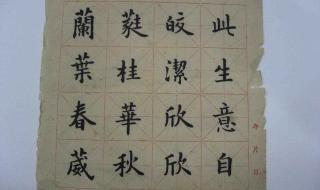 蘭葉春葳
蕤桂華秋
皎潔欣欣
此生意自
年月日